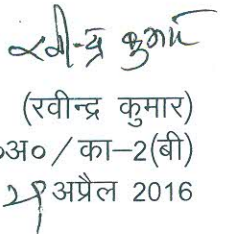 रवीन्द्र कुमार
(रवीन्द्र कुमार)
०अ० / का–2(बी)
अप्रैल 2016